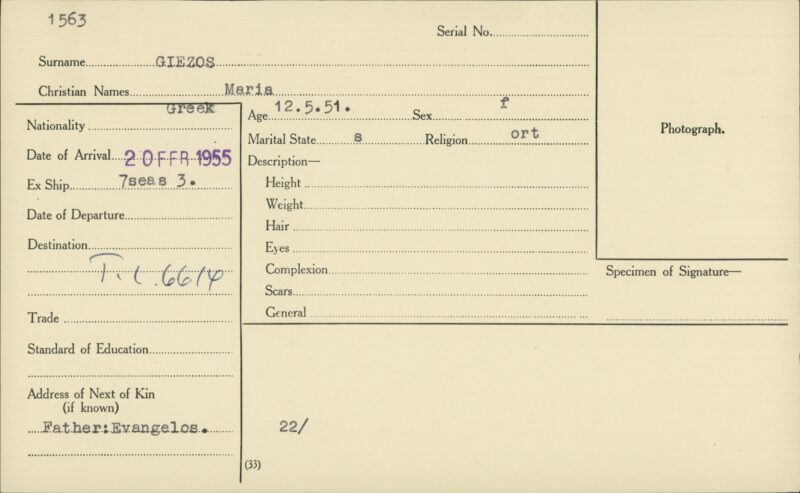 1563
Serial No.
Surname GIEZOS
Christian Names Maria
Nationality Greek
Date of Arrival 20 FEB 1955
Ex Ship 7seas 3.
Date of Departure
Destination
T.C. 6614
Trade
Standard of Education
Address of Next of Kin
(if known)
Father:Evangelos.
Age 12.5.51. Sex f
Marital State s Religion ort
Description—
Height
Weight
Hair
Eyes
Complexion
Scars
General
22/
(33)
Photograph.
Specimen of Signature—